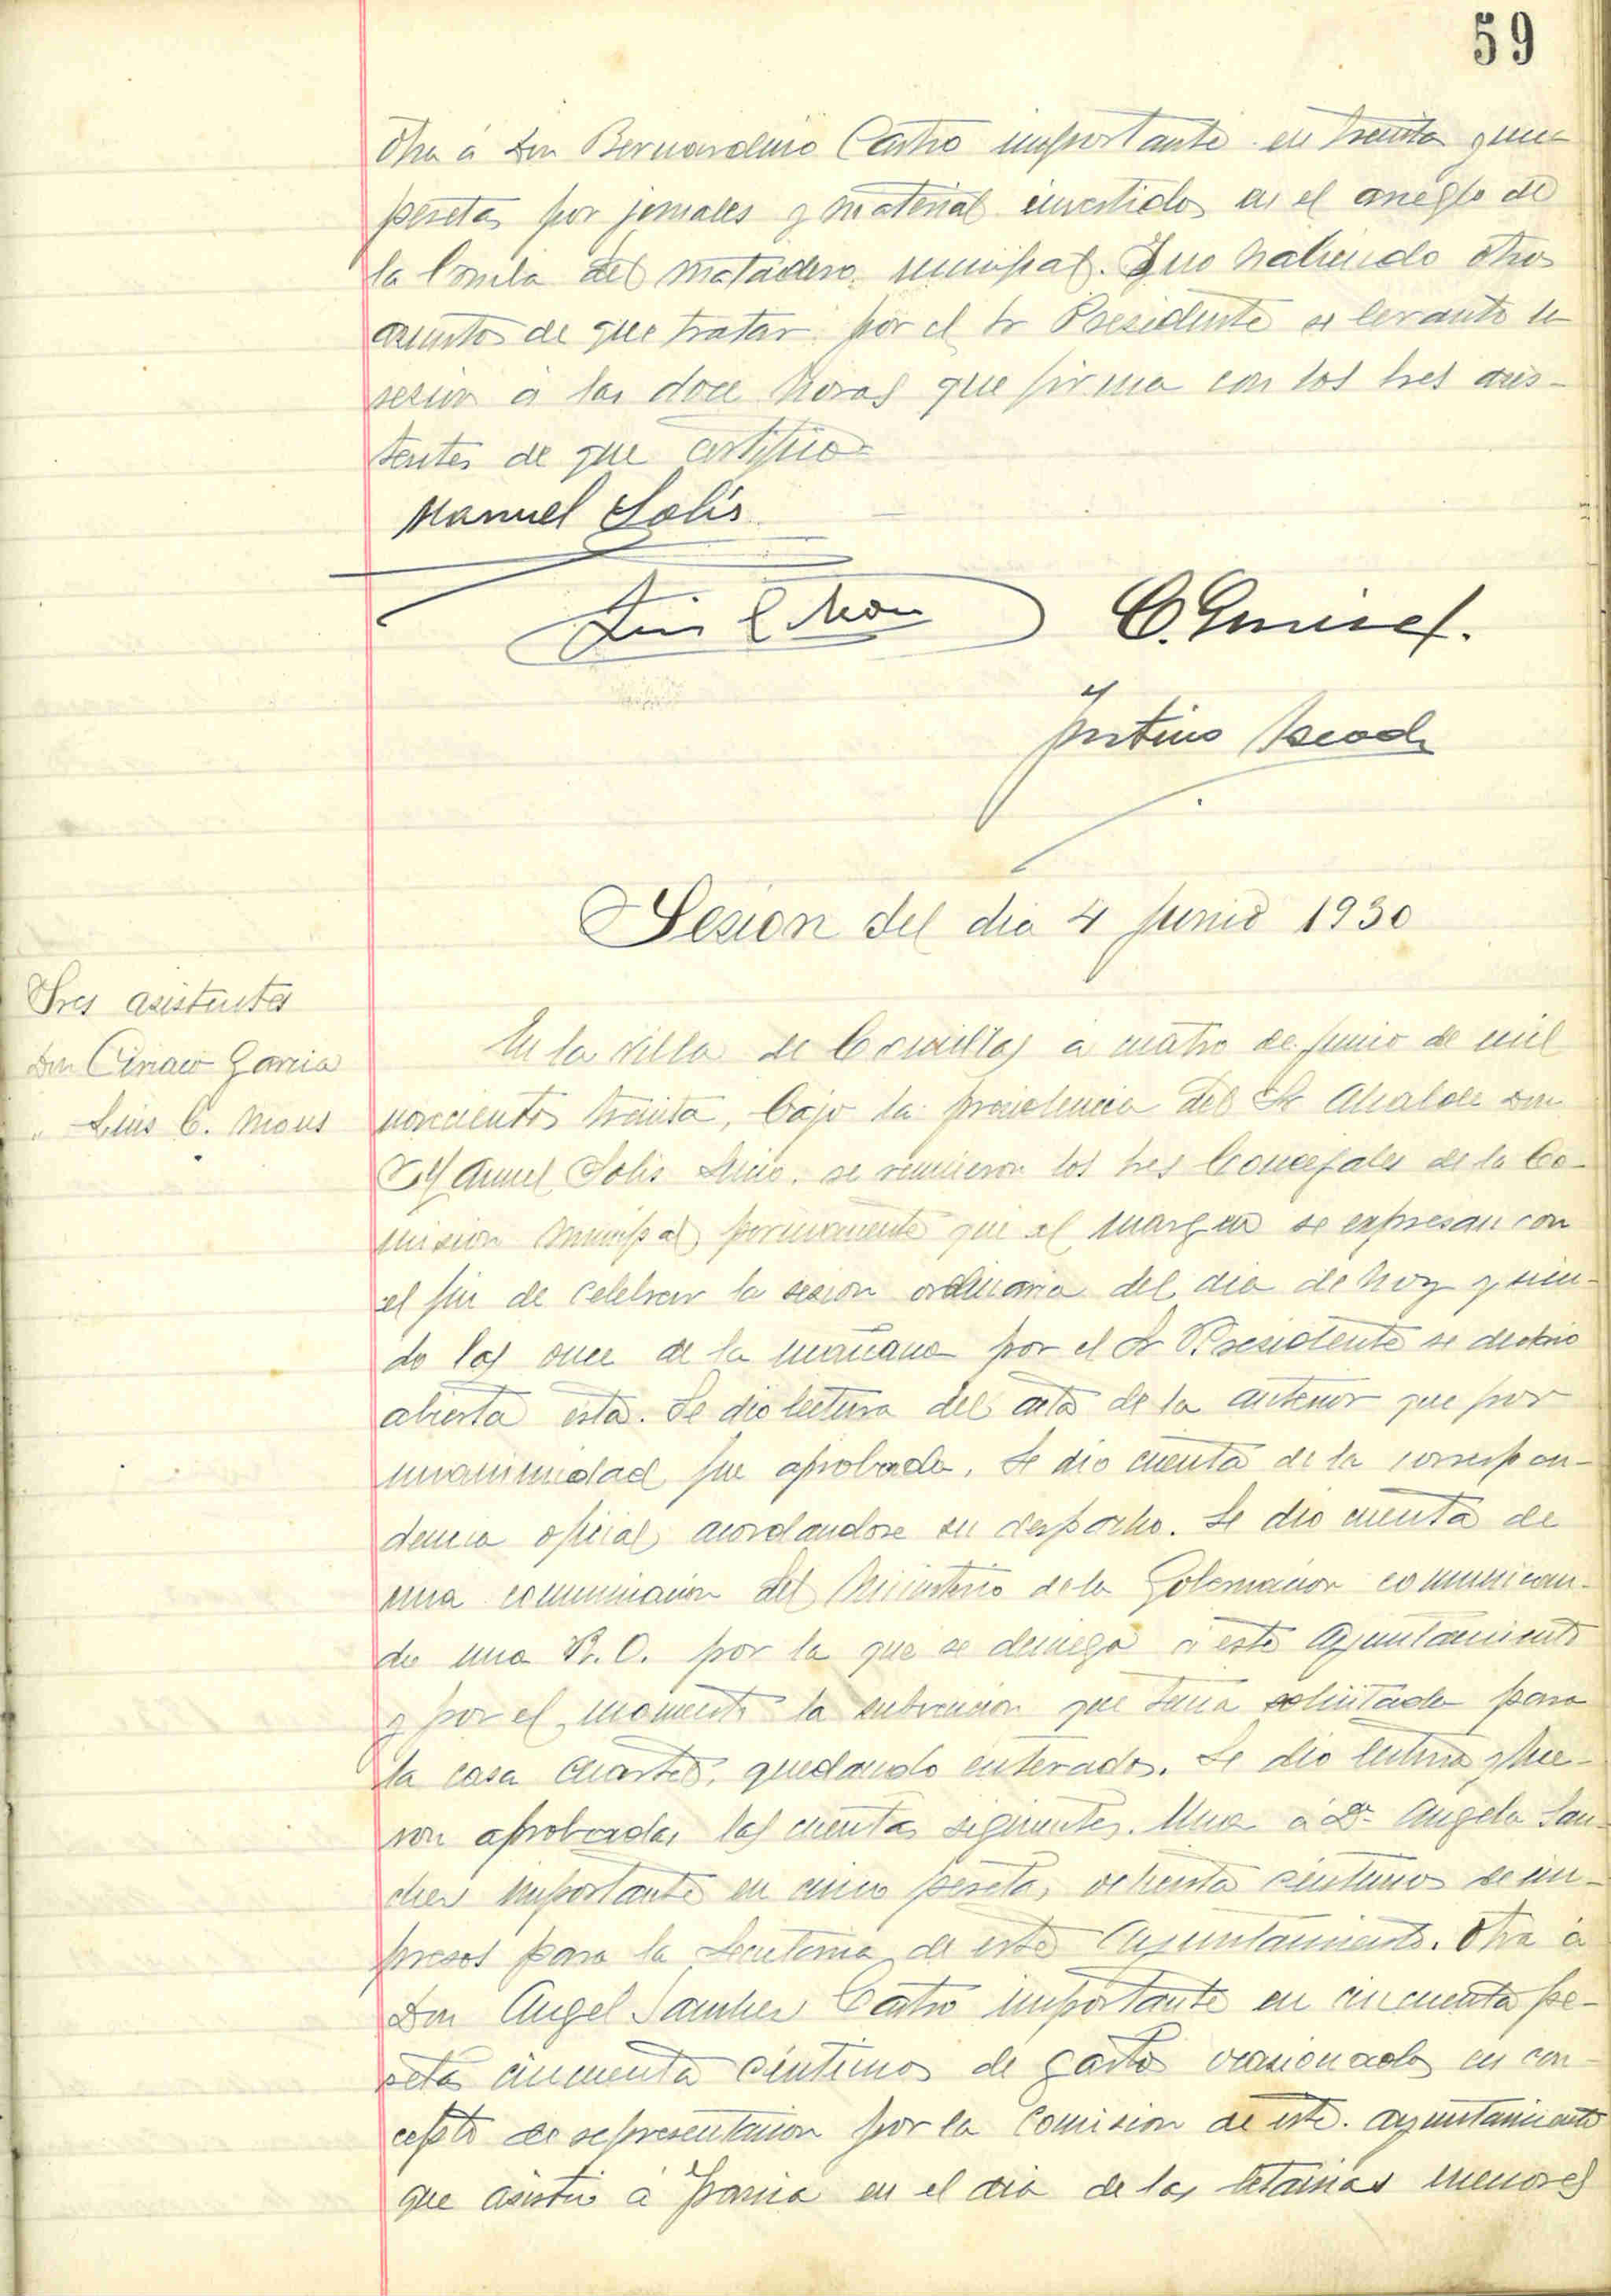 59
Otra á Don Bernardino Castro importante en treinta y una
pesetas por jornales y material invertidos en el arreglo de
la bomba del matadero municipal. Y no habiendo otros
asuntos de que tratar por el Sr Presidente se levantó la
sesión á las doce horas que firma con los Sres asis-
tentes de que certifico=
Manuel Solís
Luis C Mons
Justino
Sesion del dia 4 Junio 1930
Sres asistentes
Don Ciriaco Garcia
" Luis C. Mons
En la villa de Comillas á cuatro de junio de mil
novecientos treinta, bajo la presidencia del Sr Alcalde Don
Manuel Solis se reunieron los Sres Concejales de la Co-
mision Municipal permanente que al margen se expresan con
el fin de celebrar la sesion ordinaria del dia de hoy y sien-
do las once de la mañana por el Sr Presidente se declaró
abierta esta. Se dio lectura del acta de la anterior que por
unanimidad fue aprobada. Se dio cuenta de la correspon-
dencia oficial acordandose su despacho. Se dio cuenta de
una comunicacion del Ministerio de la Gobernacion comunican-
do una R.O. por la que se deniega á este Ayuntamiento
y por el momento la subvencion que tenia solicitada para
la casa cuartel, quedando enterados. Se dio lectura y fue-
ron aprobadas las cuentas siguientes. Una á Dª Angela San-
chez importante en cinco pesetas, setenta céntimos de im-
presos para la Secretaria de este Ayuntamiento. Otra á
Don Angel Sanchez Castro importante en cincuenta pe-
setas cincuenta céntimos de gastos ocasionados en con-
cepto de representacion por la Comision de este Ayuntamiento
que asistió á en el dia de las letanias menores